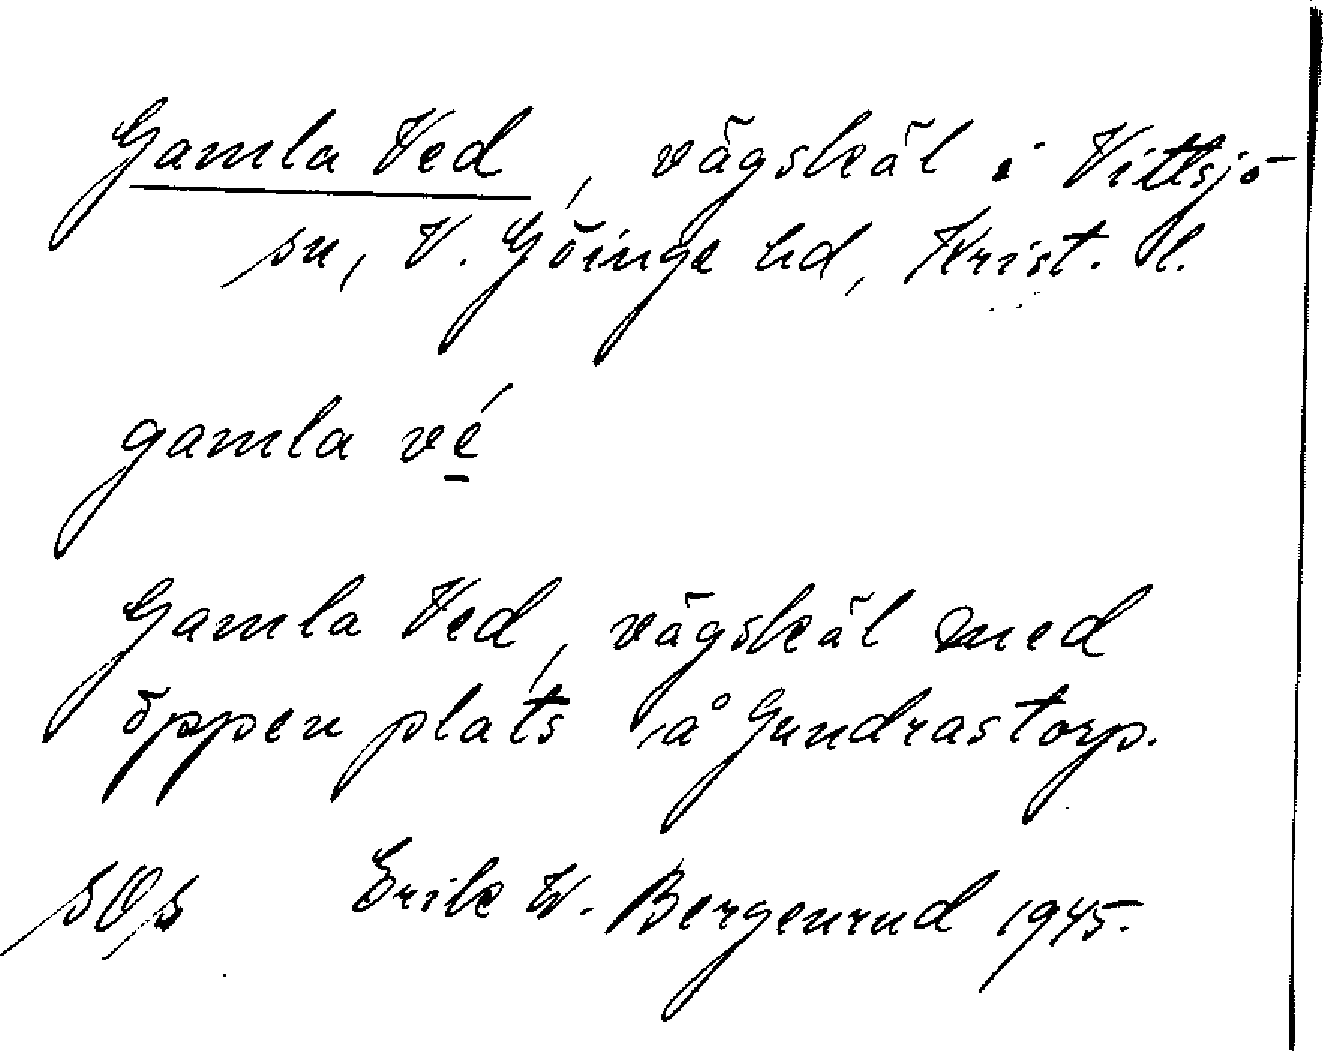 Gamla Ved, vägskäl i Vittsjö
sn, V. Göinge hd, Krist. l.
gamla vé
Gamla Ved, vägskäl med
öppen plats å Gundrastorp.
SOS Erik W. Bergenrud 1945.